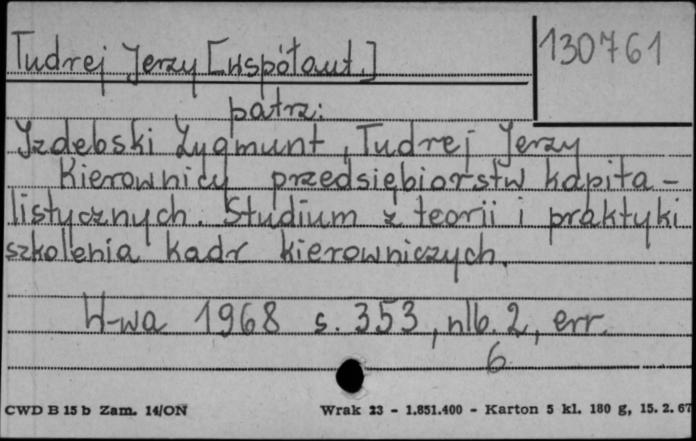 Tudrej Jerzy [współaut.]
130761
patrz:
Izdebski Zygmunt, Tudrej Jerzy
Kierownicy przedsiębiorstw kapita-
listycznych. Studium z teorii i praktyki
szkolenia kadr kierowniczych.
W-wa 1968 s. 353, nlb. 2, err.
6
CWD B 15 b Zam. 14/ON
Wrak 23 - 1.851.400 - Karton 5 kl. 180 g, 15. 2. 67